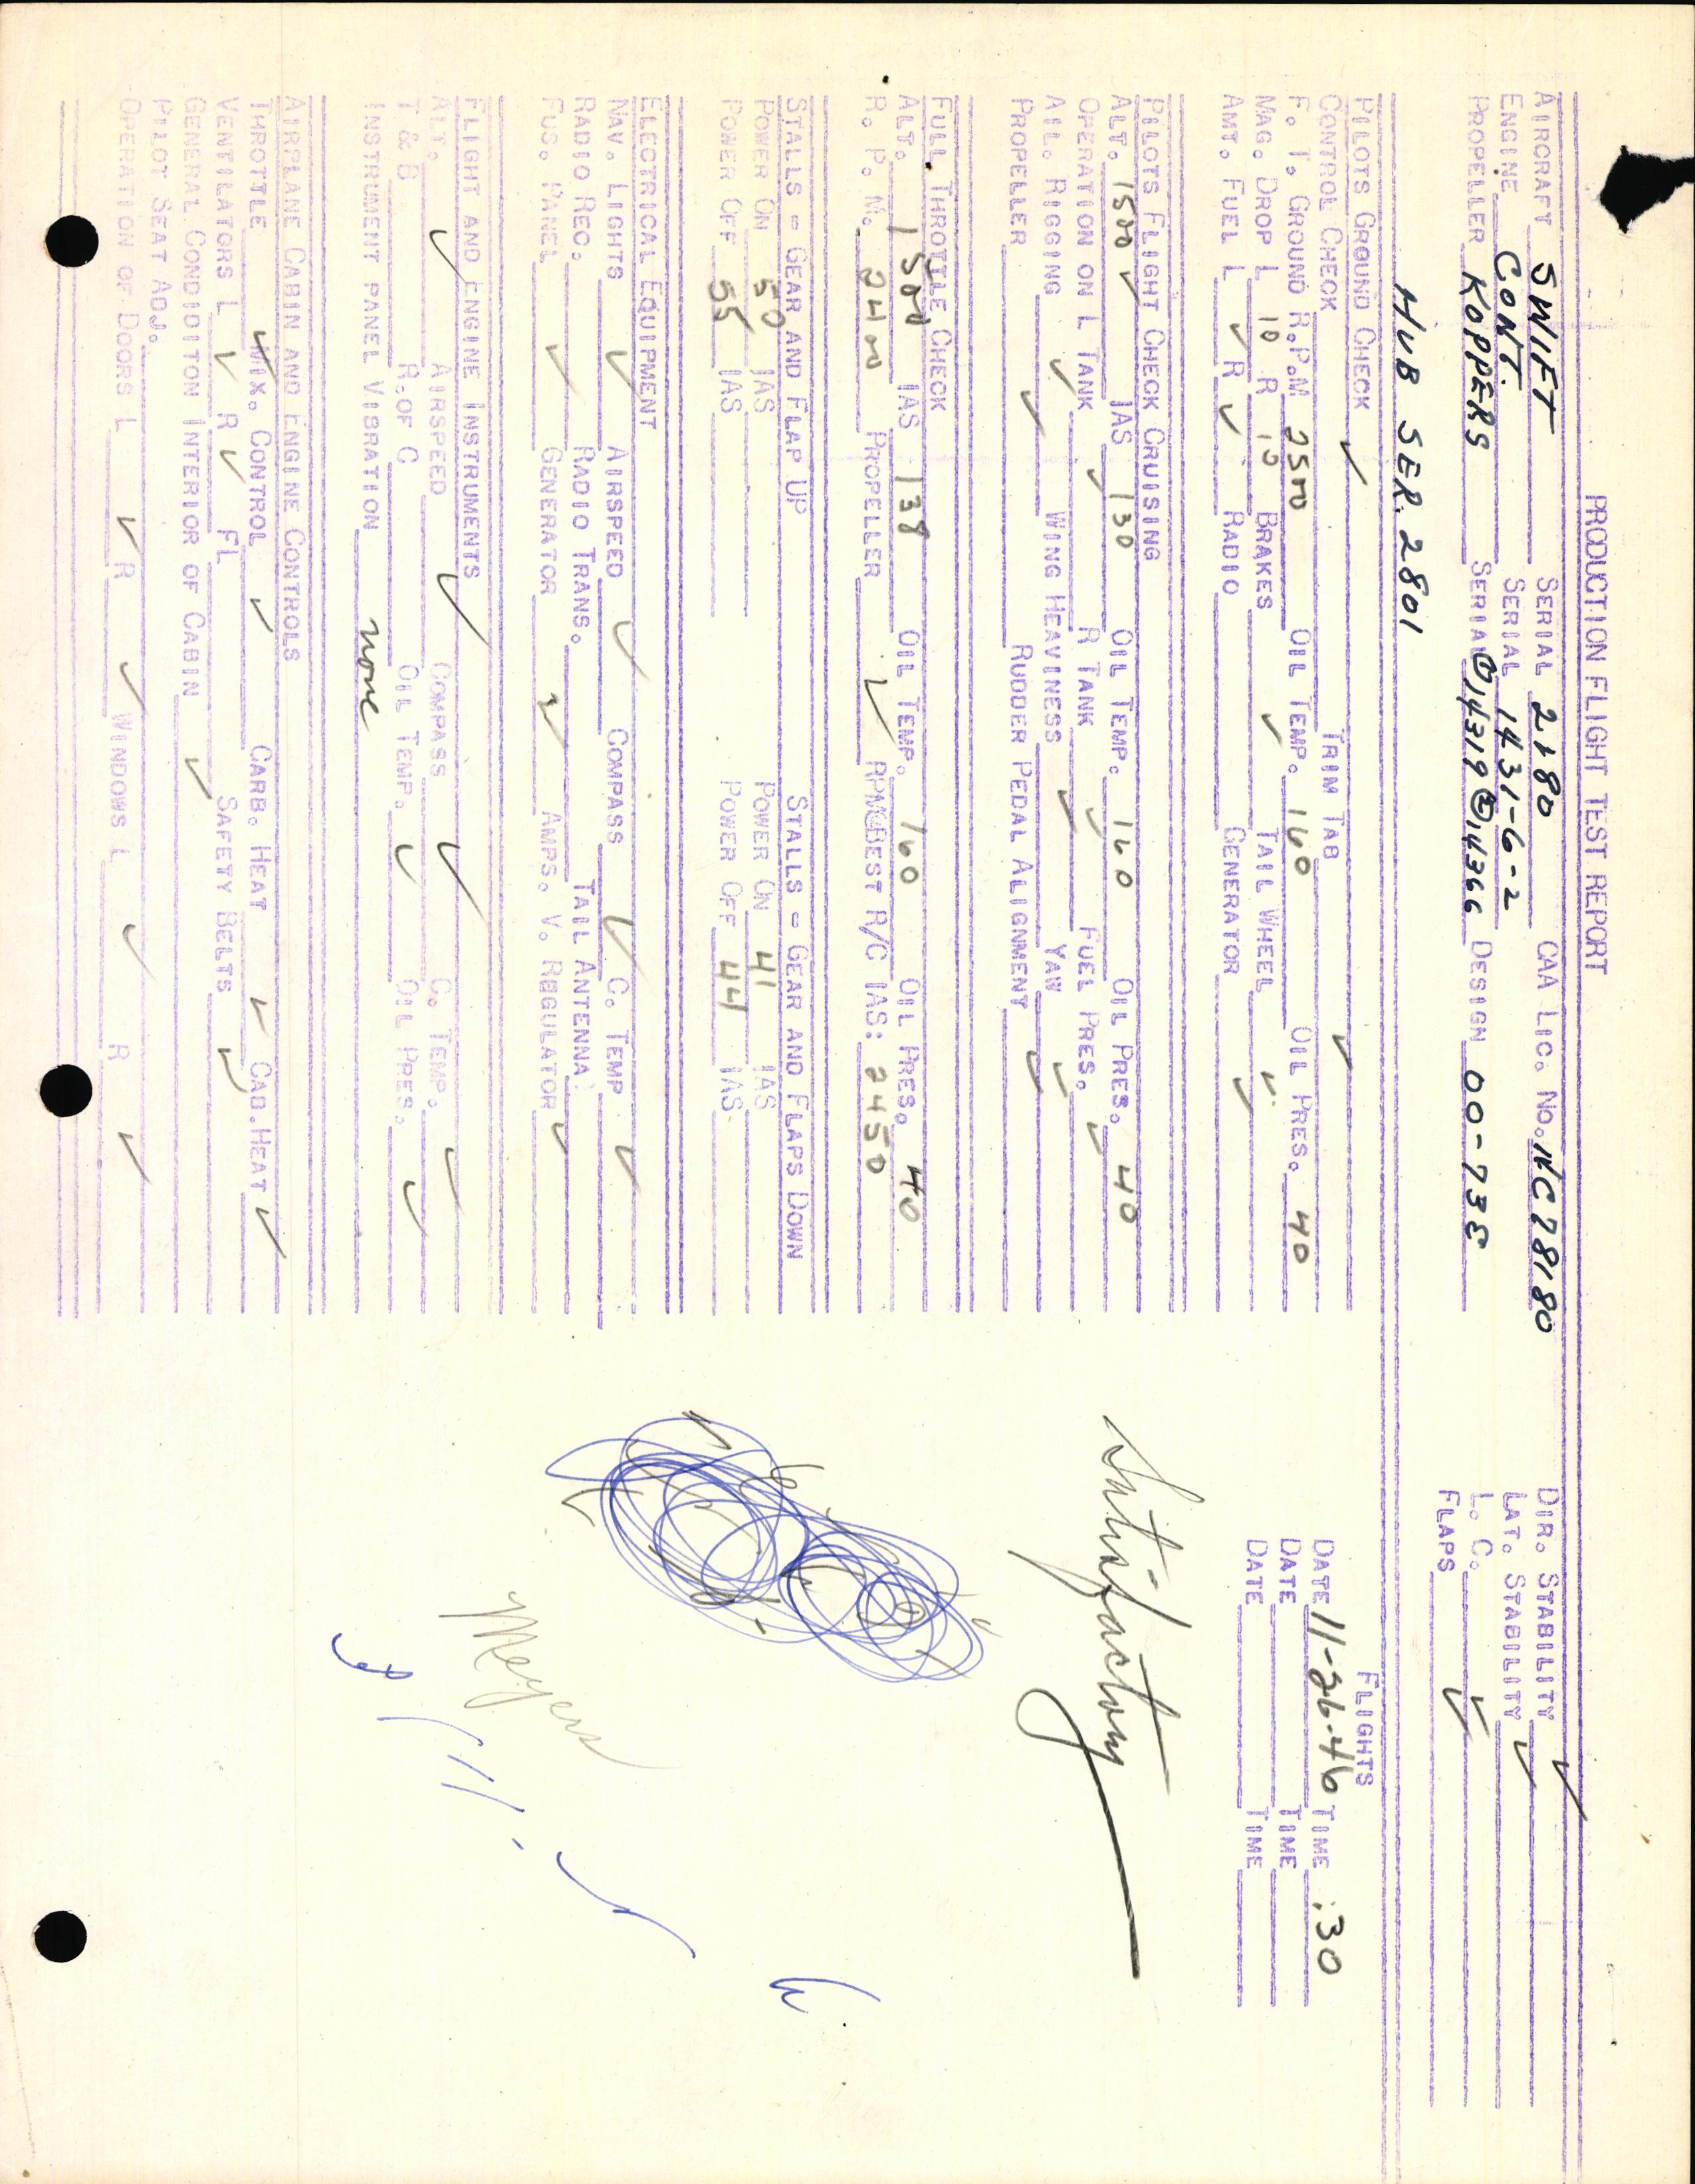 PRODUCTION FLIGHT TEST REPORT
AIRCRAFT SWIFT SERIAL 2180 CAA LIC. NO. NC78180 DIR. STABILITY ✓
ENGINE CONT. SERIAL 1431-6-2 LAT. STABILITY ✓
PROPELLER KOPPERS SERIAL ① 14319 ② 14366 DESIGN 00-73E L. C. ✓
FLAPS ✓
HUB SER. 2801
PILOTS GROUND CHECK FLIGHTS
CONTROL CHECK ✓ TRIM TAB ✓ DATE 11-26-46 TIME :30
F. T. GROUND R.P.M 2500 OIL TEMP. 160 OIL PRES. 40 DATE TIME
MAG. DROP L 10 R 10 BRAKES ✓ TAIL WHEEL ✓ DATE TIME
AMT. FUEL L ✓ R ✓ RADIO GENERATOR ✓
PILOTS FLIGHT CHECK CRUISING
ALT. 1500 ✓ IAS 130 OIL TEMP. 160 OIL PRES. 40
OPERATION ON L TANK ✓ R TANK ✓ FUEL PRES. ✓
AIL. RIGGING ✓ WING HEAVINESS ✓ YAW ✓
PROPELLER ✓ RUDDER PEDAL ALIGNMENT ✓
Satisfactory
FULL THROTTLE CHECK
ALT. 1500 IAS 138 OIL TEMP. 160 OIL PRES. 40
R. P. M. 2400 PROPELLER ✓ RPM@BEST R/C IAS: 2450
STALLS = GEAR AND FLAP UP STALLS = GEAR AND FLAPS DOWN
POWER ON 50 IAS POWER ON 41 IAS
POWER OFF 55 IAS POWER OFF 44 IAS
ELECTRICAL EQUIPMENT
NAV. LIGHTS ✓ AIRSPEED ✓ COMPASS ✓ C. TEMP ✓
RADIO REC. RADIO TRANS. TAIL ANTENNA
FUS. PANEL ✓ GENERATOR ✓ AMPS. V. REGULATOR ✓
Meyers
FLIGHT AND ENGINE INSTRUMENTS
ALT. ✓ AIRSPEED ✓ COMPASS ✓ C. TEMP. ✓
T & B R. OF C OIL TEMP. ✓ OIL PRES. ✓
INSTRUMENT PANEL VIBRATION none
AIRPLANE CABIN AND ENGINE CONTROLS
THROTTLE ✓ MIX. CONTROL ✓ CARB. HEAT ✓ CAB. HEAT ✓
VENTILATORS L ✓ R ✓ FL SAFETY BELTS ✓
GENERAL CONDIDITON INTERIOR OF CABIN ✓
PILOT SEAT ADJ.
OPERATION OF DOORS L ✓ R ✓ WINDOWS L ✓ R ✓